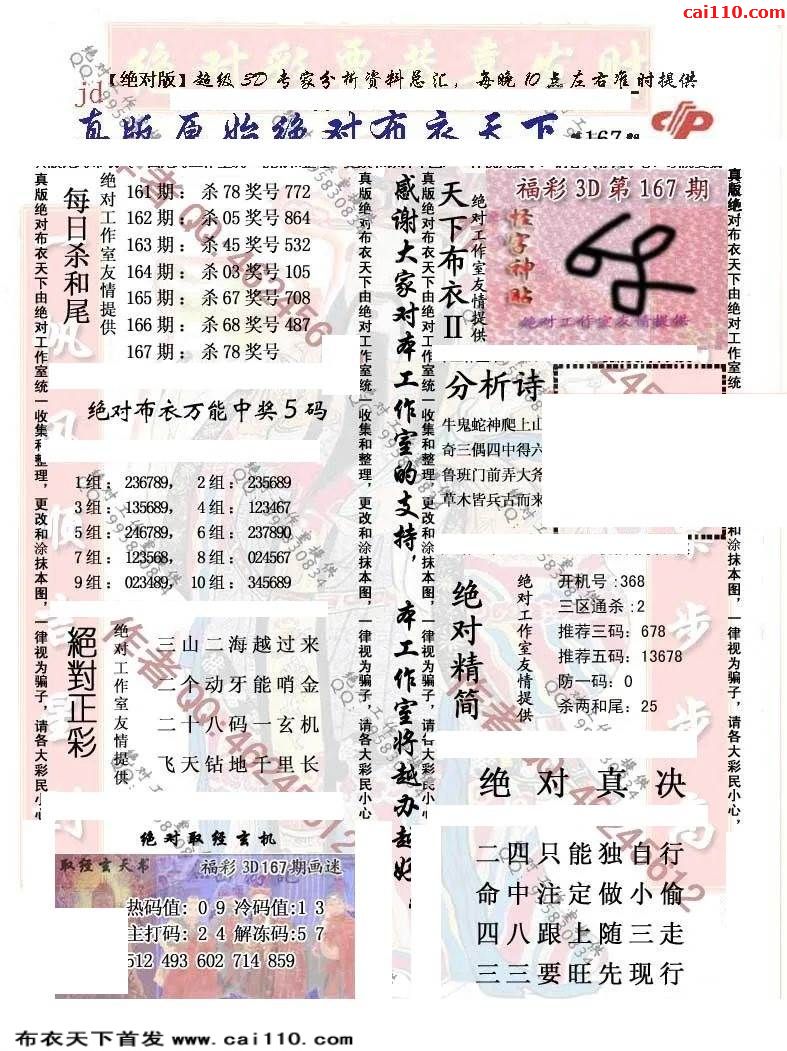 cai110.com
【绝对版】超级3D专家分析资料总汇，每晚10点左右准时提供
jd
真版原始绝对布衣天下
第167期
每日杀和尾
绝对工作室友情提供
161期：杀78奖号772
162期：杀05奖号864
163期：杀45奖号532
164期：杀03奖号105
165期：杀67奖号708
166期：杀68奖号487
167期：杀78奖号
真版绝对布衣天下由绝对工作室统一收集和整理，更改和涂抹本图，一律视为骗子，请各大彩民小心
感谢大家对本工作室的支持，本工作室将越办越好
真版绝对布衣天下由绝对工作室统一收集和整理，更改和涂抹本图，一律视为骗子，请各大彩民小心
天下布衣II
绝对工作室友情提供
福彩3D第167期
怪字神贴
绝对工作室友情提供
绝对布衣万能中奖5码
1组：236789，2组：235689
3组：135689，4组：123467
5组：246789，6组：237890
7组：123568，8组：024567
9组：023489，10组：345689
分析诗
牛鬼蛇神爬上山
奇三偶四中得六
鲁班门前弄大斧
草木皆兵古而来
絕對正彩
绝对工作室友情提供
三山二海越过来
二个动牙能哨金
二十八码一玄机
飞天钻地千里长
绝对精简
绝对工作室友情提供
开机号:368
三区通杀:2
推荐三码：678
推荐五码：13678
防一码：0
杀两和尾：25
绝对真决
二四只能独自行
命中注定做小偷
四八跟上随三走
三三要旺先现行
绝对取经玄机
取经玄天书
福彩3D167期画迷
热码值：09冷码值:13
主打码：24解冻码:57
512 493 602 714 859
布衣天下首发 www.cai110.com